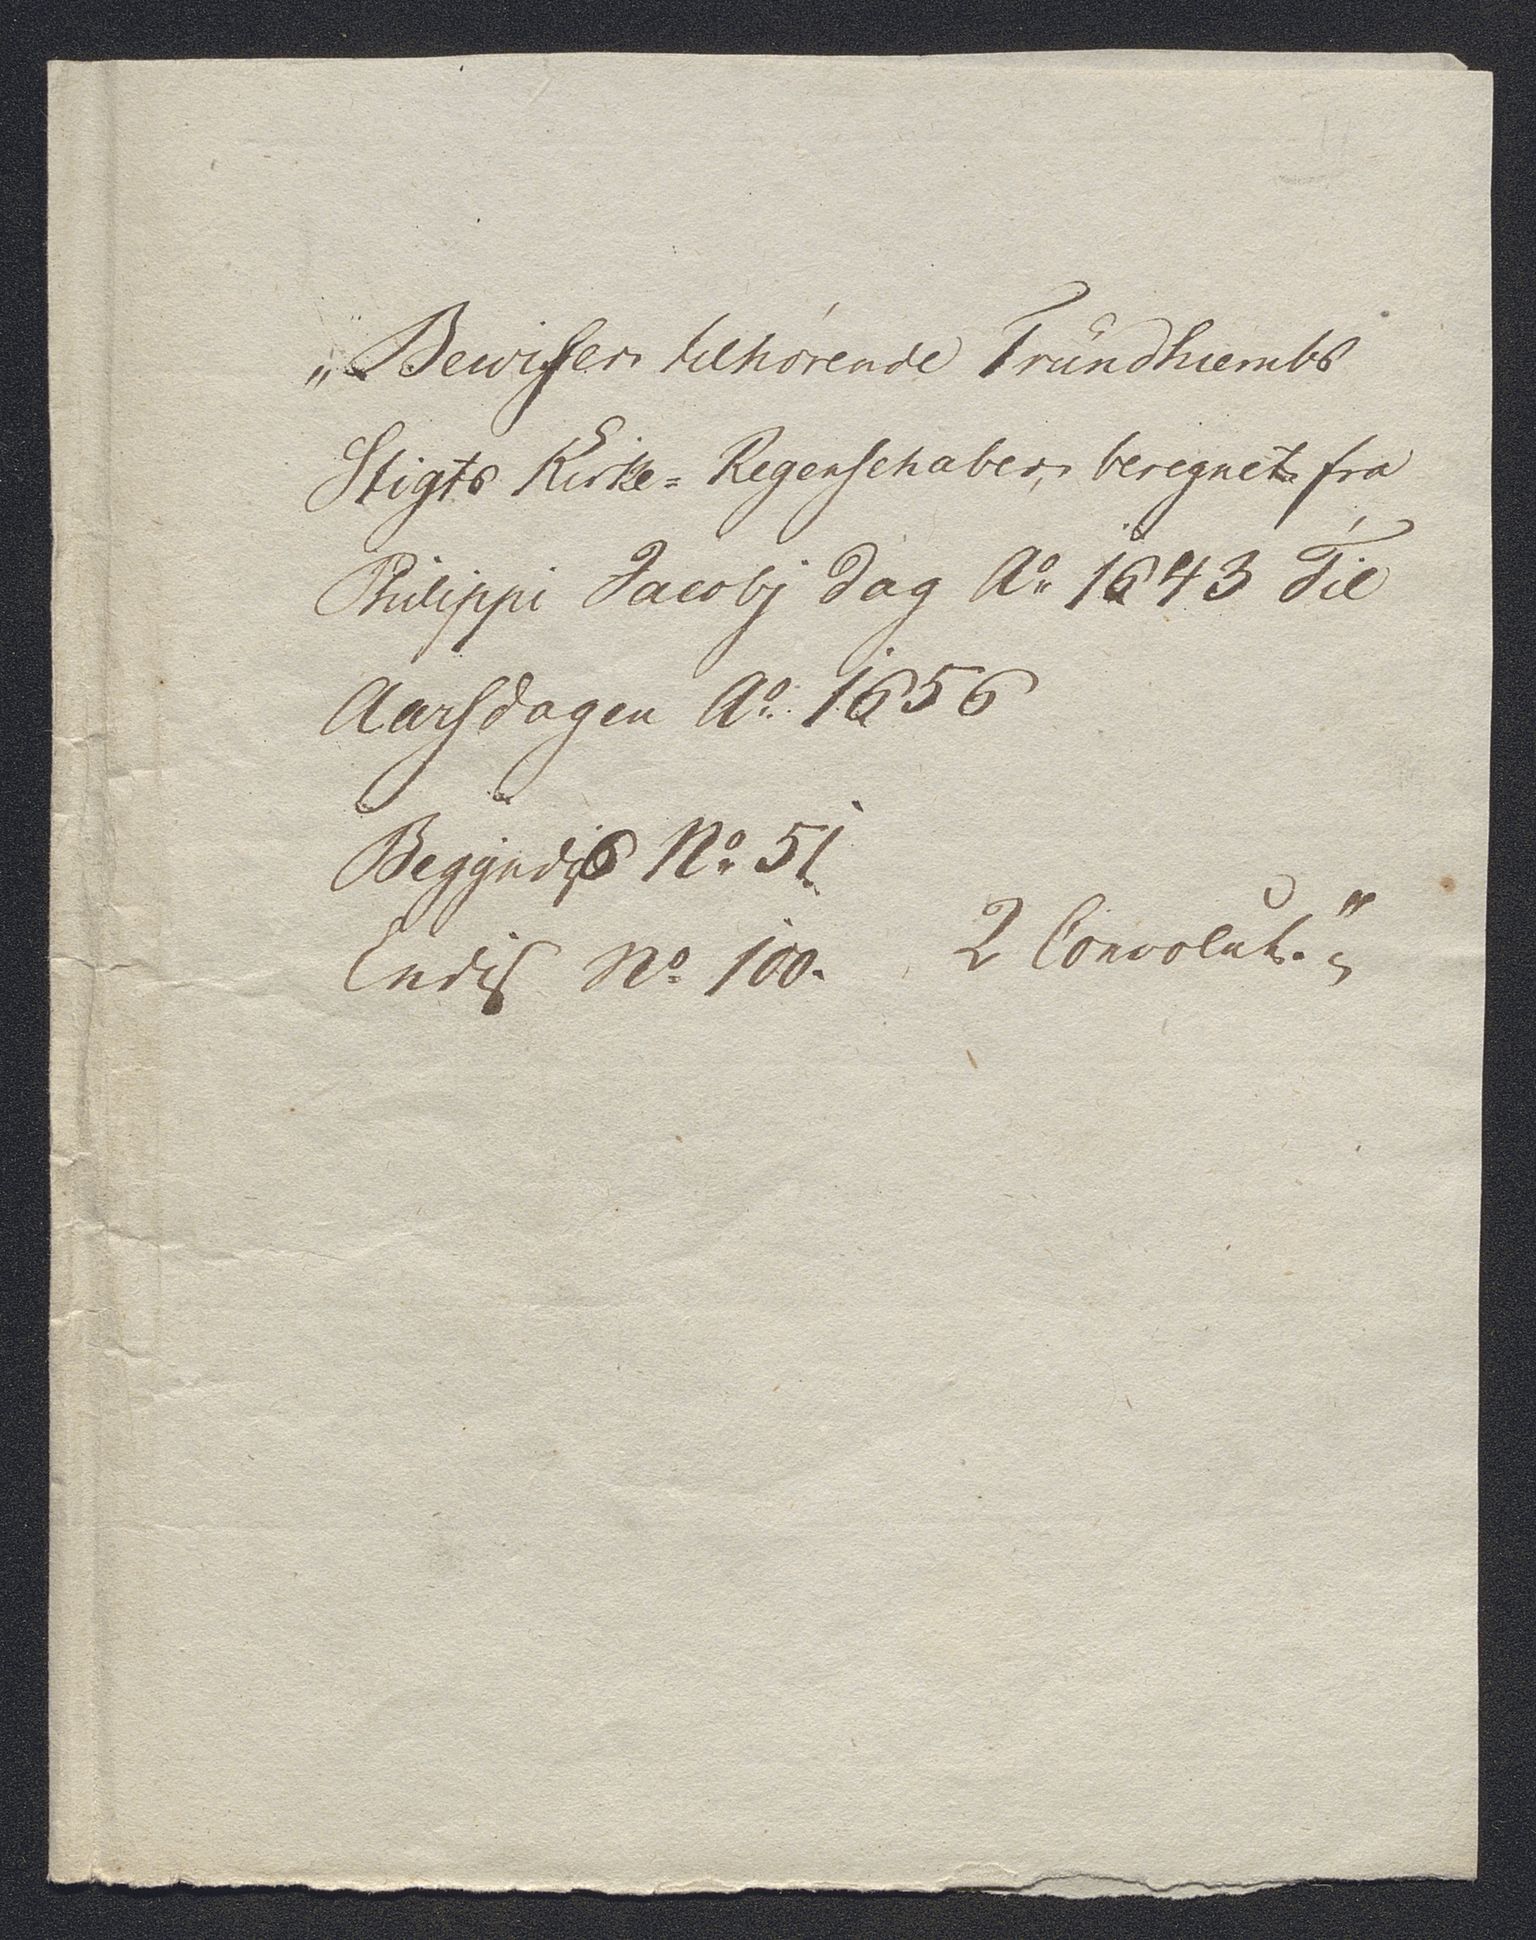 „Bewiser tilhørende Trundhiembs
Stigts Kirke= Regenschaber, beregnet fra
Philippi Jacobj Dag Aº 1643 Til
Aarsdagen Aº 1656
Begyndis Nº 51
Endis Nº 100. 2 Convolut.“